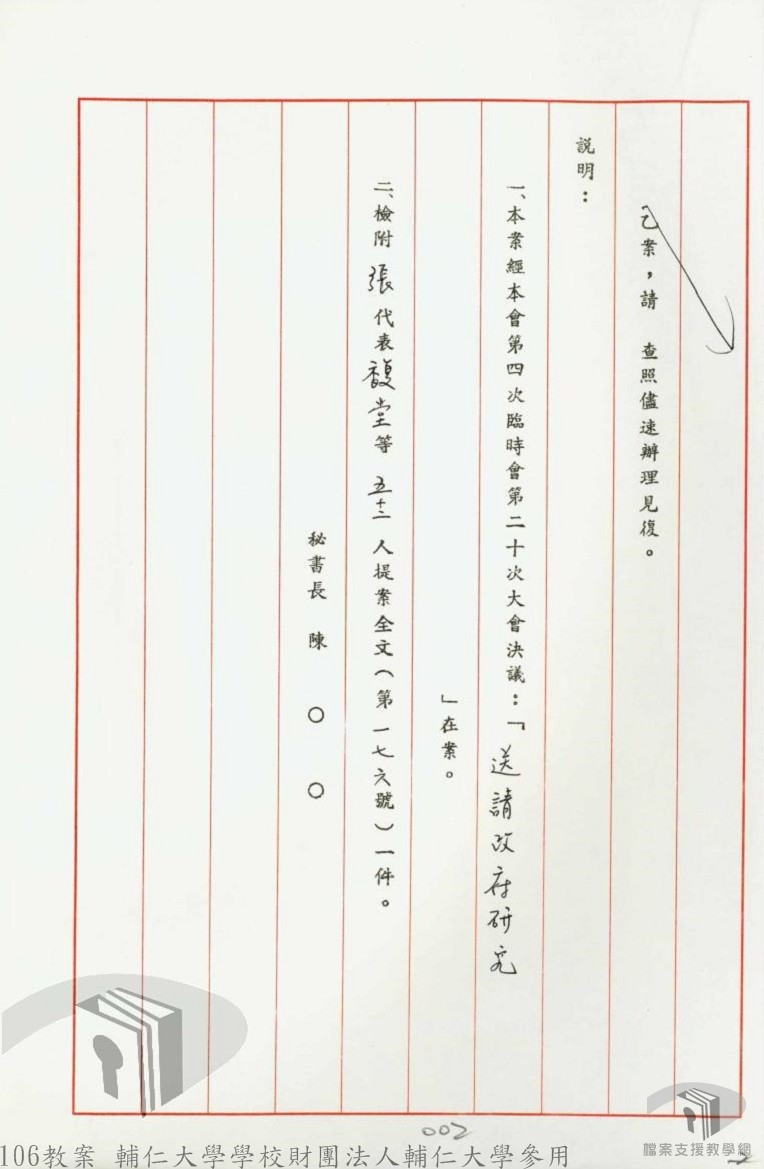 乙案，請　查照儘速辦理見復。
說明：
一、本案經本會第四次臨時會第二十次大會決議：「送請政府研究
」在案。
二、檢附張代表馥堂等五十二人提案全文（第一七六號）一件。
秘書長　陳　○　○
002
106教案 輔仁大學學校財團法人輔仁大學參用
檔案支援教學網